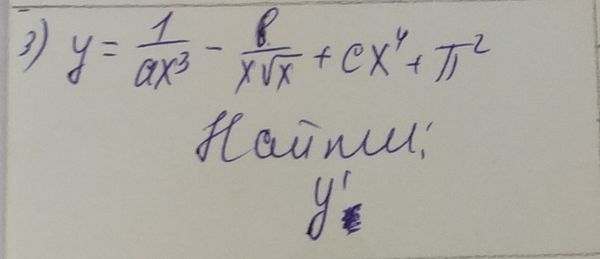 3) y = 1/(ax³) - b/(x√x) + cx⁴ + π²
Найти:
y'